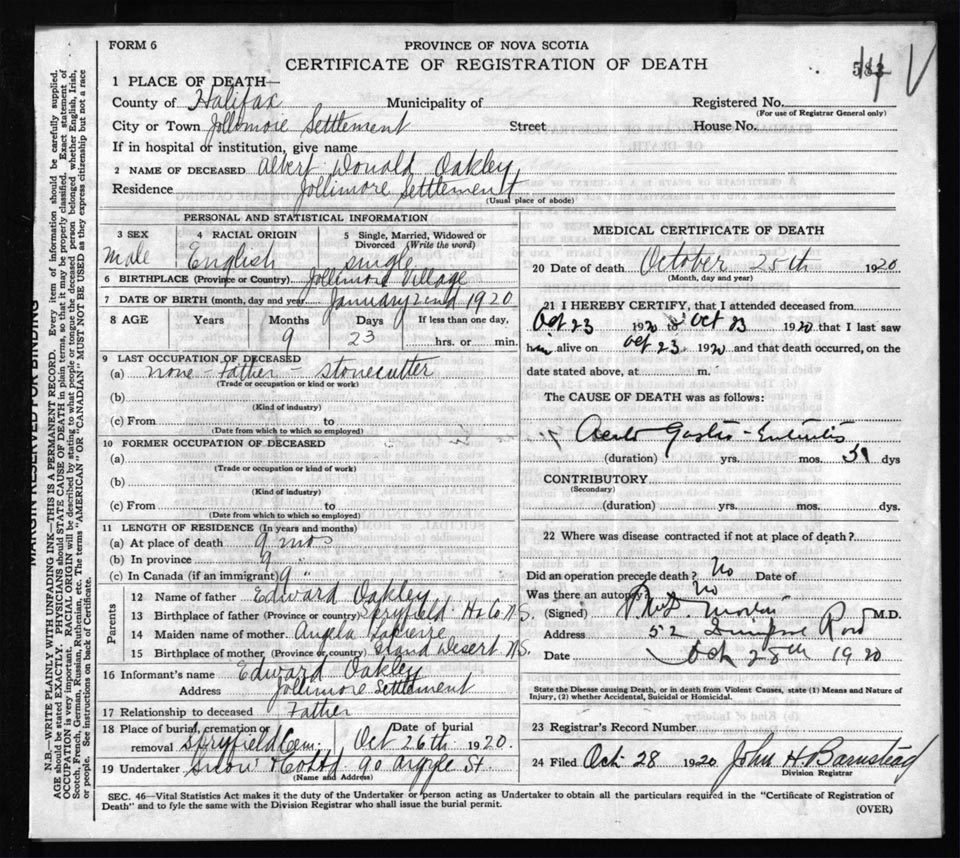 FORM 6
PROVINCE OF NOVA SCOTIA
CERTIFICATE OF REGISTRATION OF DEATH
1 PLACE OF DEATH—
County of Halifax Municipality of Registered No.
(For use of Registrar General only)
City or Town Jollimore Settlement Street House No.
If in hospital or institution, give name
2 NAME OF DECEASED Albert Donald Oakley
Residence Jollimore Settlement
(Usual place of abode)
PERSONAL AND STATISTICAL INFORMATION
3 SEX 4 RACIAL ORIGIN 5 Single, Married, Widowed or Divorced (Write the word)
Male English single
6 BIRTHPLACE (Province or Country) Jollimore Village
7 DATE OF BIRTH (month, day and year) January 22nd 1920
8 AGE Years Months Days If less than one day,
9 23 hrs. or min.
9 LAST OCCUPATION OF DECEASED
(a) none - Father - stonecutter
(Trade or occupation or kind or work)
(b)
(Kind of industry)
(c) From to
(Date from which to which so employed)
10 FORMER OCCUPATION OF DECEASED
(a)
(Trade or occupation or kind of work)
(b)
(Kind of industry)
(c) From to
(Date from which to which so employed)
11 LENGTH OF RESIDENCE (In years and months)
(a) At place of death 9 mos
(b) In province 9 "
(c) In Canada (if an immigrant) 9 "
Parents
12 Name of father Edward Oakley
13 Birthplace of father (Province or country) Spryfield Hx Co N.S.
14 Maiden name of mother Angela
15 Birthplace of mother (Province or country) Desert N.S.
16 Informant's name Edward Oakley
Address Jollimore Settlement
17 Relationship to deceased Father
18 Place of burial, cremation or removal Spryfield Cem. Date of burial Oct 26th 1920.
19 Undertaker Snow & Co 90 Argyle St.
(Name and Address)
MEDICAL CERTIFICATE OF DEATH
20 Date of death October 25th 1920
(Month, day and year)
21 I HEREBY CERTIFY, that I attended deceased from
Oct 23 1920 to Oct 23 1920 that I last saw
him alive on Oct 23 1920 and that death occurred, on the
date stated above, at m.
The CAUSE OF DEATH was as follows:
Gastro-Enteritis
(duration) yrs. mos. dys
CONTRIBUTORY
(Secondary)
(duration) yrs. mos. dys.
22 Where was disease contracted if not at place of death?
Did an operation precede death? No Date of
Was there an autopsy? No
(Signed) M.D.
Address 52
Date Oct 28th 1920
State the Disease causing Death, or in death from Violent Causes, state (1) Means and Nature of
Injury, (2) whether Accidental, Suicidal or Homicidal.
23 Registrar's Record Number
24 Filed Oct 28 1920 John H. Barnstead
Division Registrar
SEC. 46—Vital Statistics Act makes it the duty of the Undertaker or person acting as Undertaker to obtain all the particulars required in the "Certificate of Registration of
Death" and to fyle the same with the Division Registrar who shall issue the burial permit.
(OVER)
MARGIN RESERVED FOR BINDING
N.B.—WRITE PLAINLY WITH UNFADING INK—THIS IS A PERMANENT RECORD. Every item of information should be carefully supplied.
AGE should be stated EXACTLY. PHYSICIANS should STATE CAUSE OF DEATH in plain terms, so that it may be properly classified. Exact statement of
OCCUPATION is very important. RACIAL ORIGIN will be described by stating to what people or tongue the deceased person belonged whether English, Irish,
Scotch, French, German, Russian, Ruthenian, etc. The terms "AMERICAN" OR "CANADIAN" MUST NOT BE USED as they express citizenship but not a race
or people. See instructions on back of Certificate.